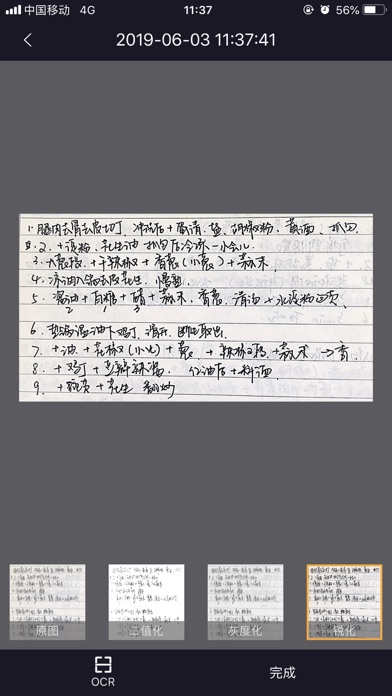 中国移动 4G 11:37 56%
2019-06-03 11:37:41
1. 腿肉去骨去皮切丁, 冲洗后+蛋清、盐、胡椒粉、黄酒、抓匀
2. +淀粉、花生油 抓匀后冷冻一小会儿.
3. 大葱段、+干辣椒+香葱(小葱)+蒜末.
4. 凉油入锅去皮花生, 小慢熟
5. 酱油+白糖+醋+蒜末、香葱、清油+水淀粉
2 1 3
6. 温油下鸡丁 滑开、取出.
7. +油、+花椒(小火)+葱、+辣椒段、+蒜末 →香
8. +鸡丁+豆瓣辣酱、红油后+料酒
9. +花生 翻炒
原图 二值化 灰度化 锐化
OCR 完成